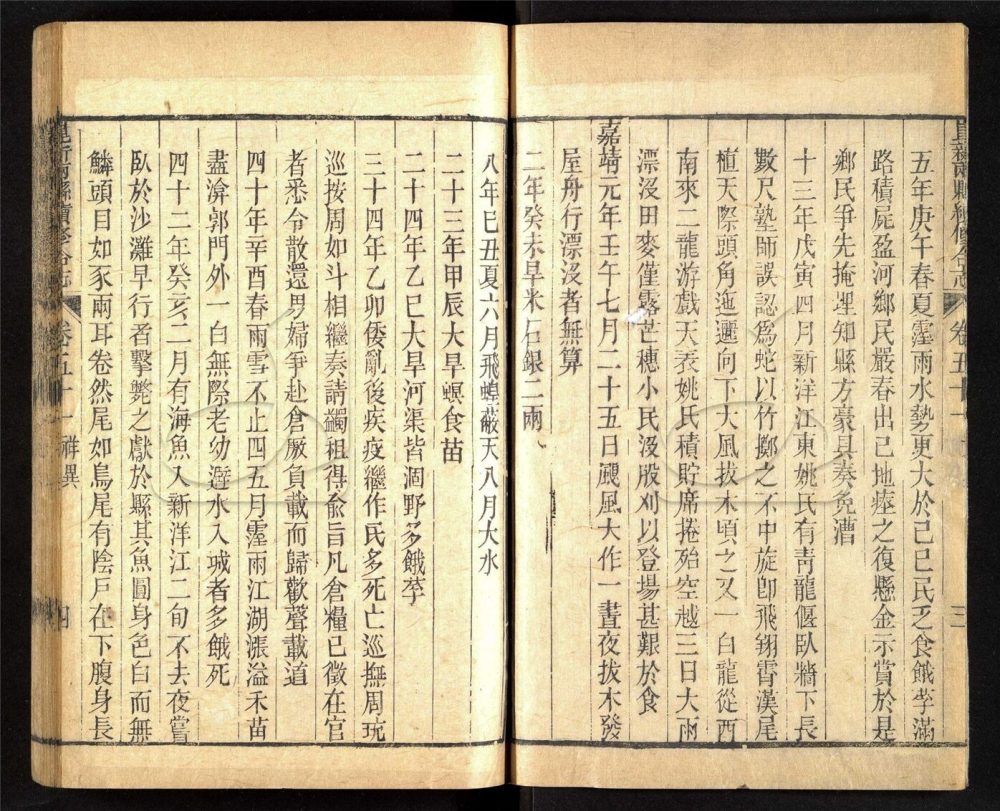 崑新兩縣續修合志 卷五十一 三
五年庚午春夏霪雨水勢更大於己巳民乏食餓莩滿
路積屍盈河鄉民嚴春出己地瘞之復懸金示賞於是
鄉民爭先掩埋知縣方豪具奏免漕
十三年戊寅四月新洋江東姚氏有靑龍偃臥牆下長
數尺塾師誤認爲蛇以竹擲之不中旋卽飛翔霄漢尾
植天際頭角迤邐向下大風拔木頃之又一白龍從西
南來二龍游戲天表姚氏積貯席捲殆空越三日大雨
漂沒田麥僅露芒穗小民沒股刈以登場甚艱於食
嘉靖元年壬午七月二十五日颶風大作一晝夜拔木發
屋舟行漂沒者無算
二年癸未旱米石銀二兩
八年巳丑夏六月飛蝗蔽天八月大水
二十三年甲辰大旱螟食苗
二十四年乙巳大旱河渠皆涸野多餓莩
三十四年乙卯倭亂後疾疫繼作民多死亡巡撫周珫
巡按周如斗相繼奏請蠲租得兪旨凡倉糧已徵在官
者悉令散還男婦爭赴倉厫負載而歸歡聲載道
四十年辛酉春雨雪不止四五月霪雨江湖漲溢禾苗
盡渰郭門外一白無際老幼避水入城者多餓死
四十二年癸亥二月有海魚入新洋江二旬不去夜嘗
臥於沙灘早行者擊斃之獻於縣其魚圓身色白而無
鱗頭目如豕兩耳卷然尾如鳥尾有陰戸在下腹身長
崑新兩縣續修合志 卷五十一 祥異 四